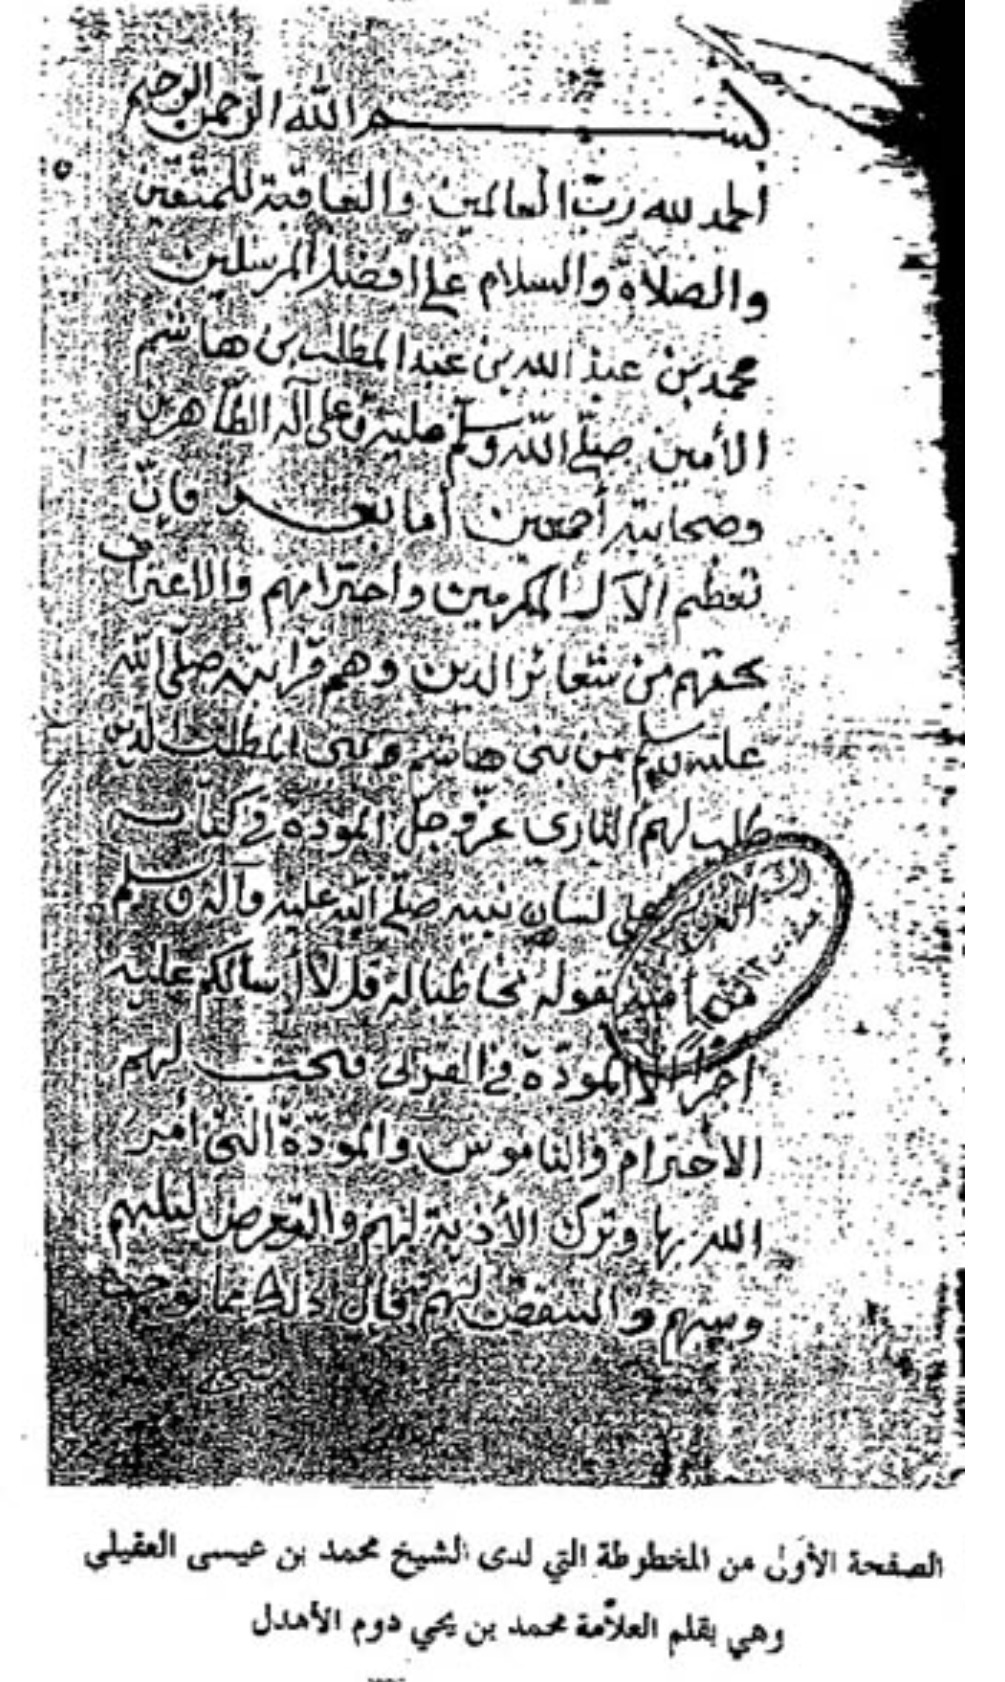 بسم الله الرحمن الرحيم
الحمد لله ربّ العالمين والعاقبة للمتقين
والصلاة والسلام على افضل المرسلين
محمد بن عبد الله بن عبد المطلب بن هاشم
الأمين صلّى الله وسلّم عليه وعلى آله الطاهرين
وصحابته أجمعين أما بعد فإنّ
تعظيم الآل المكرمين واحترامهم والاعتراف
بحقهم من شعائر الدين وهم قرابته صلّى الله
عليه وسلم من بني هاشم وبني المطلب الذين
طلب لهم الباري عزّ وجلّ المودة في كتابه
على لسان نبيه صلّى الله عليه وآله وسلم
بقوله مخاطبا له قل لا أسألكم عليه
أجرا إلا المودّة في القربى فيجب لهم
الأحترام والناموس والمودّة التي أمر
الله بها وترك الأذية لهم والتعرض لثلبهم
وسبهم والتنقص لهم فإن ذلك مما يوجب
الصفحة الأولى من المخطوطة التي لدى الشيخ محمد بن عيسى العقيلي
وهي بقلم العلاّمة محمد بن يحي دوم الأهدل